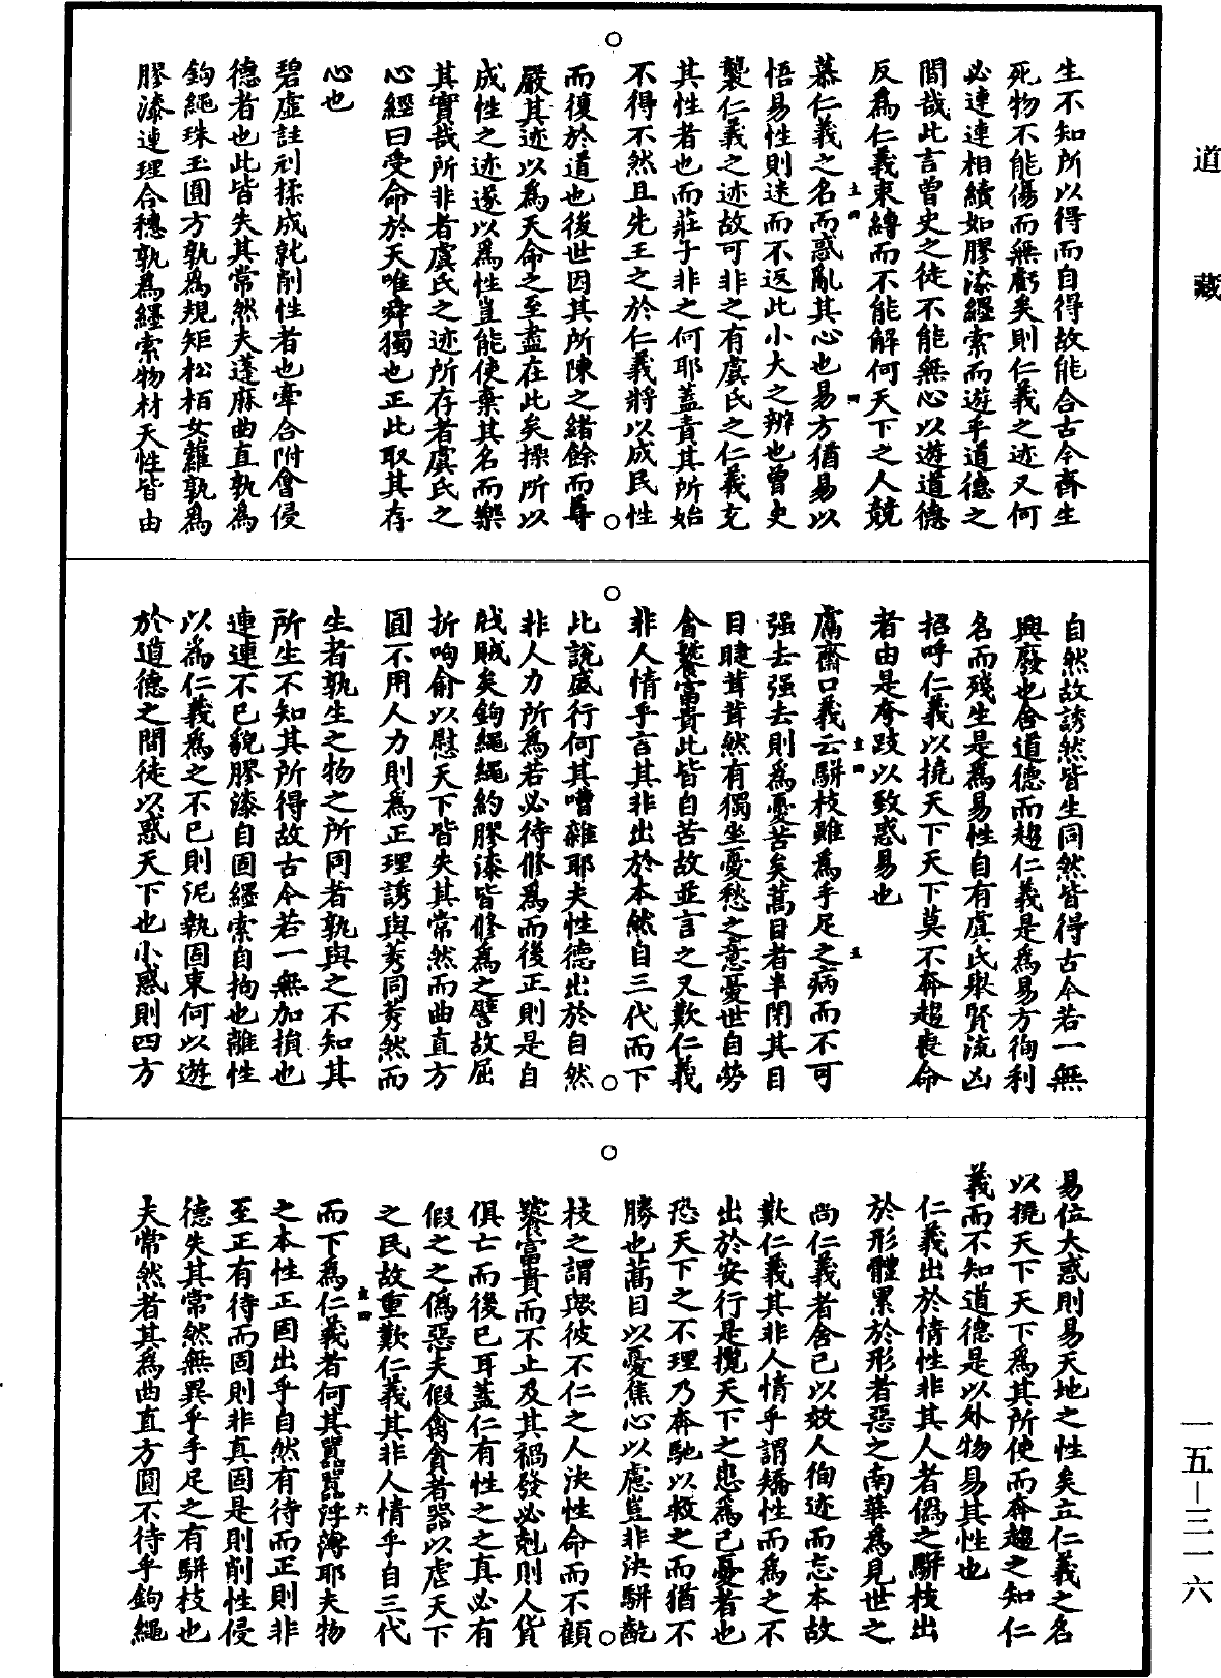 道藏
生不知所以得而自得故能合古今齊生
死物不能傷而無虧矣則仁義之迹又何
必連連相續如膠漆纆索而遊乎道德之
間哉此言曾史之徒不能無心以遊道德
反為仁義束縛而不能解何天下之人競
慕仁義之名而惑亂其心也易方猶易以
悟易性則迷而不返此小大之辨也曾史
製仁義之迹故可非之有虞氏之仁義充
其性者也而莊子非之何耶蓋責其所始
不得不然且先王之於仁義將以成民性
而復於道也後世因其所陳之緒餘而尊
嚴其迹以為天命之至盡在此矣操所以
成性之迹遂以為性豈能使棄其名而樂
其實哉所非者虞氏之迹所存者虞氏之
心經曰受命於天唯舜獨也正此取其存
心也
碧虛註刓揉成就削性者也牽合附會侵
德者也此皆失其常然夫蓬麻曲直孰為
鉤繩珠玉圓方孰為規矩松栢女蘿孰為
膠漆連理合穗孰為纆索物材天性皆由
自然故誘然皆生同然皆得古今若一無
興廢也舍道德而趨仁義是為易方徇利
名而殘生是為易性自有虞氏舉賢流凶
招呼仁義以撓天下天下莫不奔趨喪命
者由是夸跂以致惑易也
鬳齋口義云駢枝雖為手足之病而不可
强去强去則為憂苦矣蒿目者半閉其目
目睫茸茸然有獨坐憂愁之意憂世自勞
會饕富貴此皆自苦故並言之又歎仁義
非人情乎言其非出於本然自三代而下
此說盛行何其嘈雜耶夫性德出於自然
非人力所為若必待修為而後正則是自
戕賊矣鉤繩繩約膠漆皆修為之譬故屈
折呴俞以慰天下皆失其常然而曲直方
圓不用人力則為正理誘與莠同莠然而
生者孰生之物之所同者孰與之不知其
所生不知其所得故古今若一無加損也
連連不已貌膠漆自固纆索自拘也離性
以為仁義為之不已則泥執固束何以遊
於道德之間徒以惑天下也小惑則四方
易位大惑則易天地之性矣立仁義之名
以撓天下天下為其所使而奔趨之知仁
義而不知道德是以外物易其性也
仁義出於情性非其人者僞之駢枝出
於形體累於形者惡之南華為見世之
尚仁義者舍己以效人徇迹而忘本故
歎仁義其非人情乎謂矯性而為之不
出於安行是攬天下之患為己憂者也
恐天下之不理乃奔馳以救之而猶不
勝也蒿目以憂焦心以慮豈非決駢齕
枝之謂與彼不仁之人決性命而不顧
饕富貴而不止及其禍發必剋則人貨
俱亡而後已耳蓋仁有性之之真必有
假之之僞惡夫假禽貪者器以虐天下
之民故重歎仁義其非人情乎自三代
而下為仁義者何其囂囂浮薄耶夫物
之本性正固出乎自然有待而正則非
至正有待而固則非真固是則削性侵
德失其常然無異乎手足之有駢枝也
夫常然者其為曲直方圓不待乎鉤繩
一五－三一六